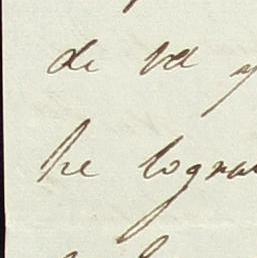 de Vd y
he logra